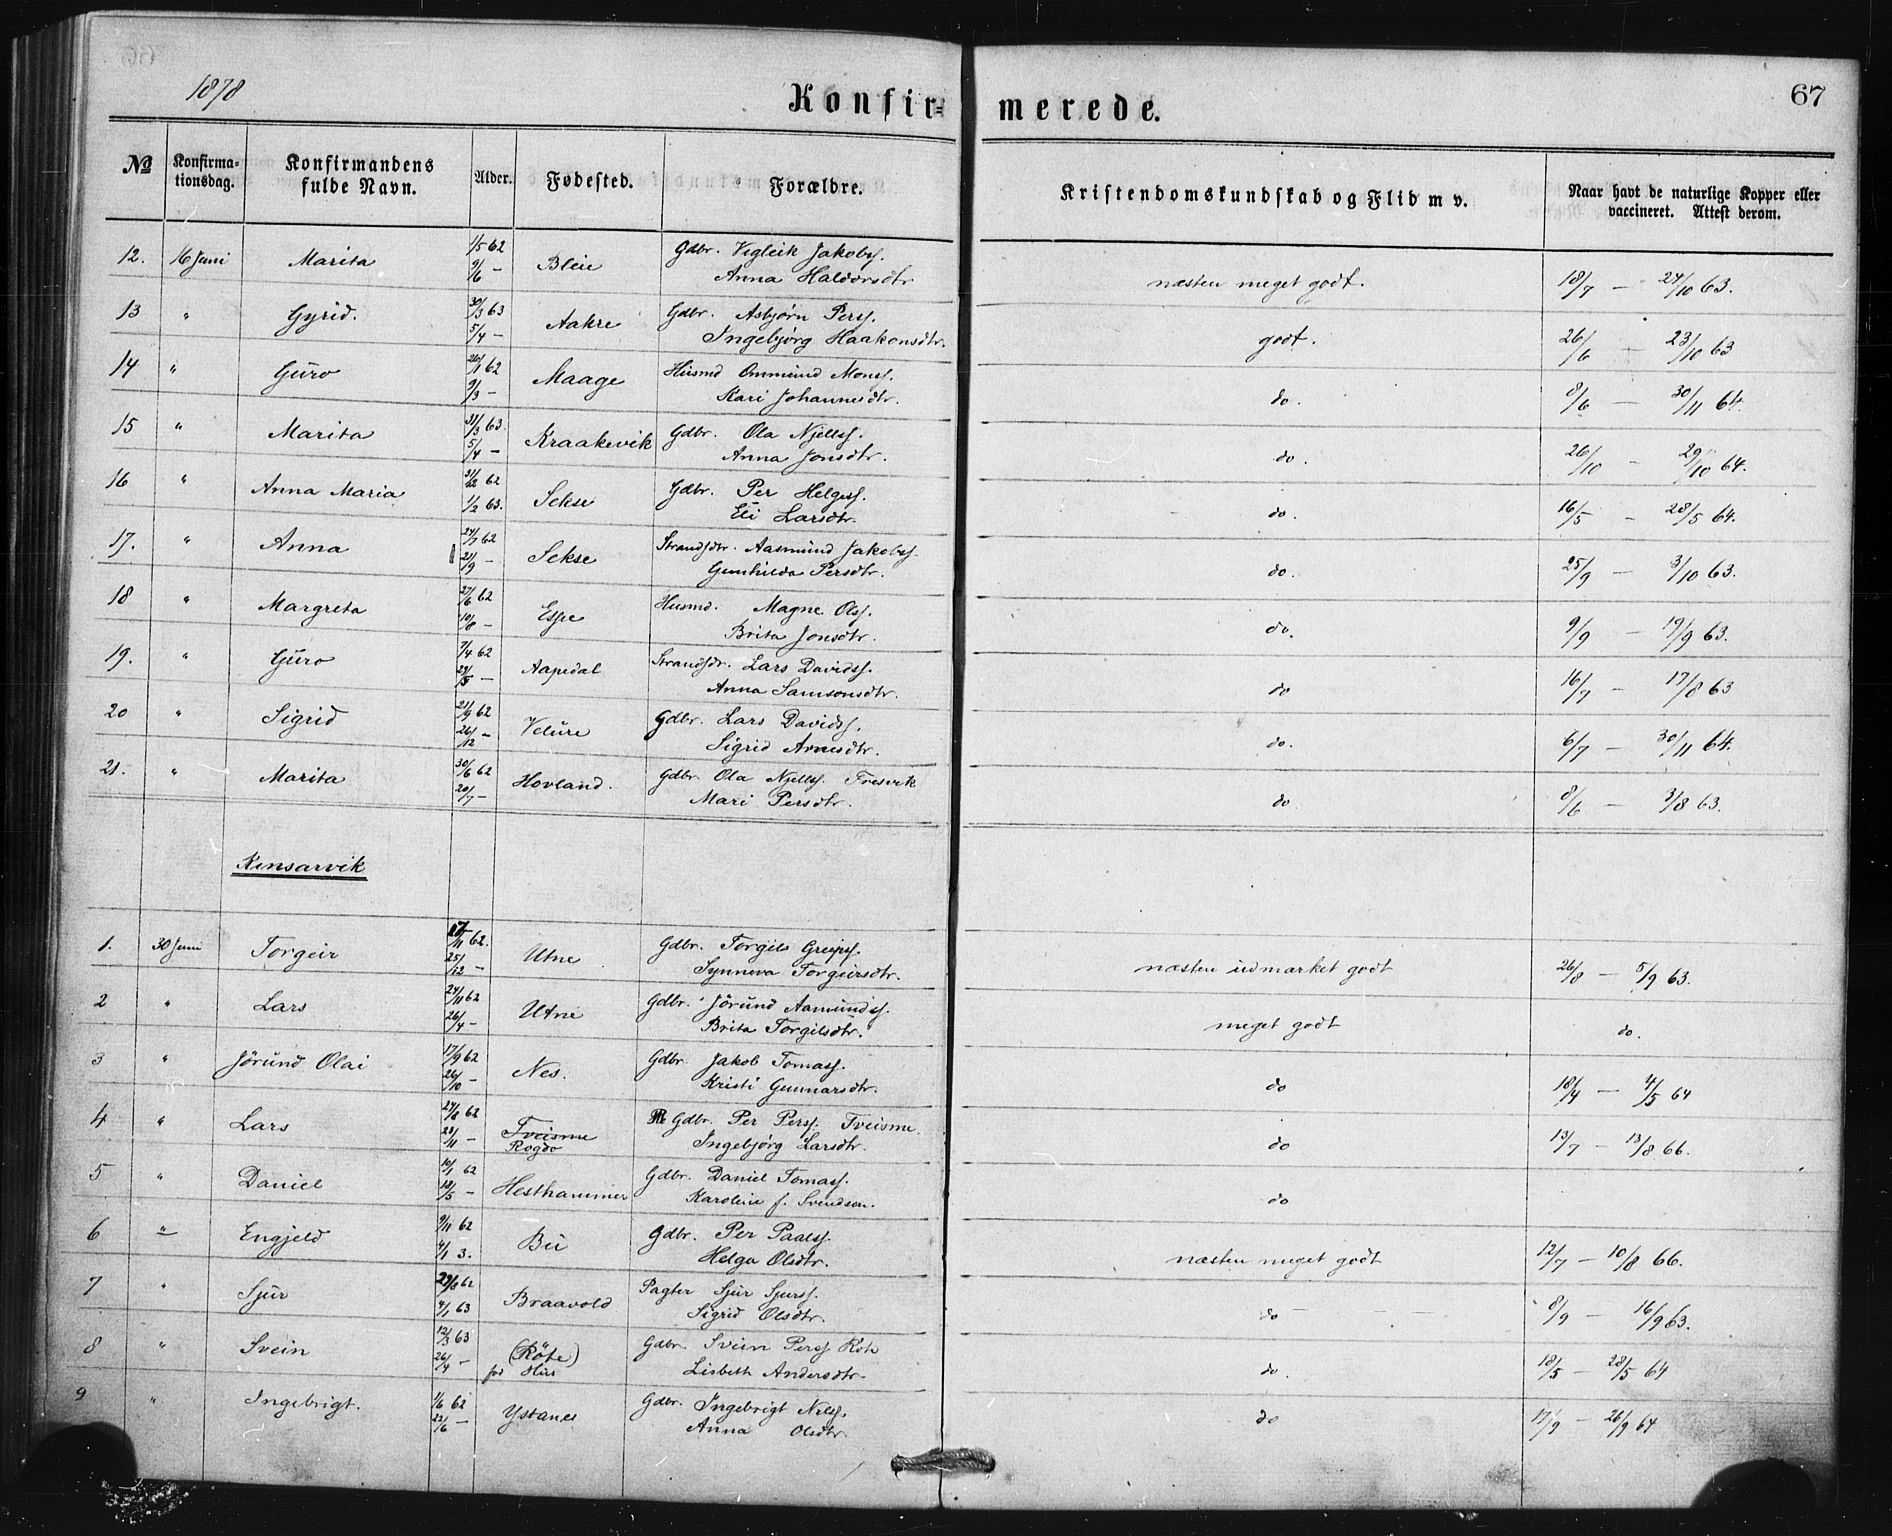 1878
Konfir=merede.
67
No Konfirmationsdag. Konfirmandens fulde Navn. Alder. Fødested. Forældre. Kristendomskundskab og Flid m v. Naar havt de naturlige Kopper eller vaccineret. Attest derom.
12. 16 Juni Marita 1/5 62 9/6 — Bleie Gdbr. Vigleik Jakobss. næsten meget godt. 18/7 — 24/10 63.
Anna Haldorsdtr
13 " Gyrid. 30/3 63 5/4 — Aakre Gdbr. Asbjørn Perss. godt. 26/6 — 23/10 63
Ingebjørg Haakonsdtr.
14 " Guro 26/1 62 9/3 — Maage Husmd Ommund Monss. do. 8/6 — 30/11 64.
Kari Johannesdtr.
15 " Marita 31/3 63. 5/4 — Kraakevik Gdbr. Ola Njellss. do. 26/10 — 29/10 64.
Anna Jonsdtr.
16 " Anna Maria 31/12 62 1/2 63. Sekse Gdbr. Per Helgess. do. 16/5 — 28/5 64.
Eli Larsdtr.
17. " Anna 24/7 62 21/9 — Sekse Strandsdtr. Aasmund Jakobss. do. 25/9 — 3/10 63.
Gunhilda Persdtr.
18 " Margreta 27/6 62 10/8 — Espe Husmd. Magne Olss. do. 9/9 — 19/9 63.
Brita Jonsdtr.
19. " Guro 7/4 62 29/5 — Aapedal Strandsdr. Lars Davidss. do 16/7 — 17/8 63
Anna Samsonsdtr.
20 " Sigrid 21/9 62 26/12 — Velure Gdbr. Lars Davidss. do. 6/7 — 30/11 64.
Sigrid Arnesdtr.
21. " Marita 30/6 62 20/7 — Hovland. Gdbr. Ola Njellss. Tresvik do 8/6 — 3/8 63.
Mari Persdtr.
Kinsarvik
1. 30 Juni Torgeir 17/11 62. 25/12 — Utne Gdbr. Torgils Greipss. næsten udmærket godt 26/8 — 5/9 63.
Synneva Torgeirsdtr.
2 " Lars 24/11 62 26/4 — Utne Gdbr. Jörund Aamundss. meget godt do.
Brita Torgilsdtr.
3 " Jörund Olai 17/9 62 26/10 — Nes. Gdbr. Jakob Tomass. do 18/4 — 4/5 64
Kristi Gunnarsdtr.
4 " Lars 24/8 62 23/11 — Tveisme Gdbr. Per Perss. Tveisme. do 13/7 — 13/8 66.
Rogdo Ingebjørg Larsdtr.
5 " Daniel 10/1 62 18/5 — Hesthammer Gdbr. Daniel Tomass. do
Karoline f. Svendsen.
6 " Engjeld 9/11 62 4/1 3. Bu Gdbr. Per Paalss. næsten meget godt 12/7 — 10/8 66.
Helga Olsdtr.
7 " Sjur 29/8 62 4/1 63 Braavold Pagter Sjur Sjurss. do 8/9 — 16/9 63.
Sigrid Olsdtr.
8 " Svein 12/3 63 26/4 — (Röte) Gdbr. Svein Perss Röte do. 18/5 — 28/5 64
fød Hus Lisbeth Andersdtr.
9 " Ingebrigt. 1/6 62 22/6 — Ystanes Gdbr. Ingebrigt Nilss. do 17/9 — 26/9 64
Anna Olsdtr.